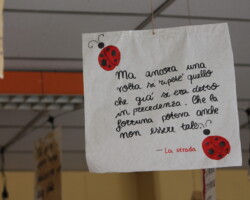 Ma ancora una
volta si ripeté quello
che già si era detto
in precedenza. Che la
fortuna poteva anche
non essere tale.
- La strada